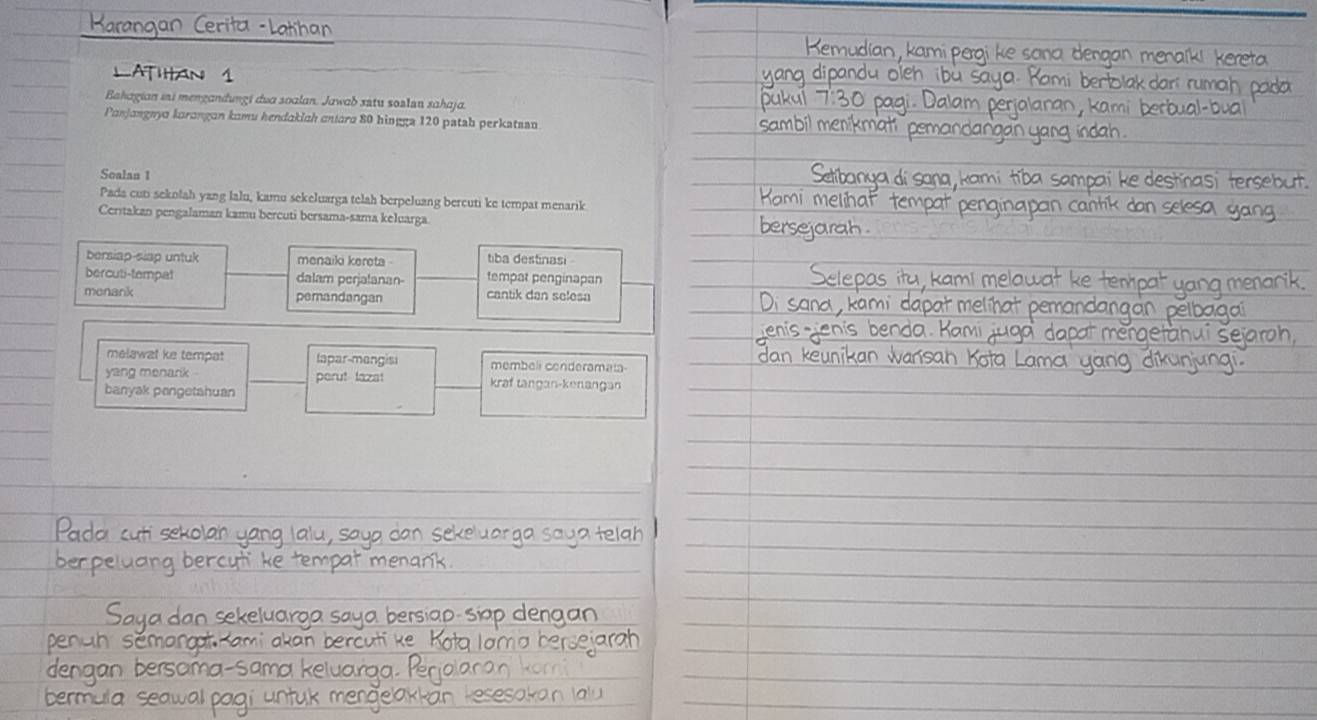 Karangan Cerita - Latihan
LATIHAN 1
Bahagian ini mengandungi dua soalan. Jawab satu soalan sahaja.
Panjangnya karangan kamu hendaklah antara 80 hingga 120 patah perkataan
Soalan 1
Pada cuti sekolah yang lalu, kamu sekeluarga telah berpeluang bercuti ke tempat menarik
Ceritakan pengalaman kamu bercuti bersama-sama keluarga.
bersiap-siap untuk
bercuti-tempat
menarik
menaiki kereta -
dalam perjalanan-
pemandangan
tiba destinasi -
tempat penginapan
cantik dan selesa
melawat ke tempat
yang menarik -
banyak pengetahuan
lapar-mengisi
perut- lazat
membeli cenderamata-
kraf tangan-kenangan
Pada cuti sekolah yang lalu, saya dan sekeluarga saya telah
berpeluang bercuti ke tempat menarik.
Saya dan sekeluarga saya bersiap-siap dengan
penuh semangat. Kami akan bercuti ke Kota lama bersejarah
dengan bersama-sama keluarga. Perjalanan kami
bermula seawal pagi untuk mengelakkan kesesakan lalu
Kemudian, kami pergi ke sana dengan menaiki kereta
yang dipandu oleh ibu saya. Kami bertolak dari rumah pada
pukul 7:30 pagi. Dalam perjalanan, kami berbual-bual
sambil menikmati pemandangan yang indah.
Setibanya di sana, kami tiba sampai ke destinasi tersebut.
Kami melihat tempat penginapan cantik dan selesa yang
bersejarah.
Selepas itu, kami melawat ke tempat yang menarik.
Di sana, kami dapat melihat pemandangan pelbagai
jenis-jenis benda. Kami juga dapat mengetahui sejarah,
dan keunikan Warisan Kota Lama yang dikunjungi.